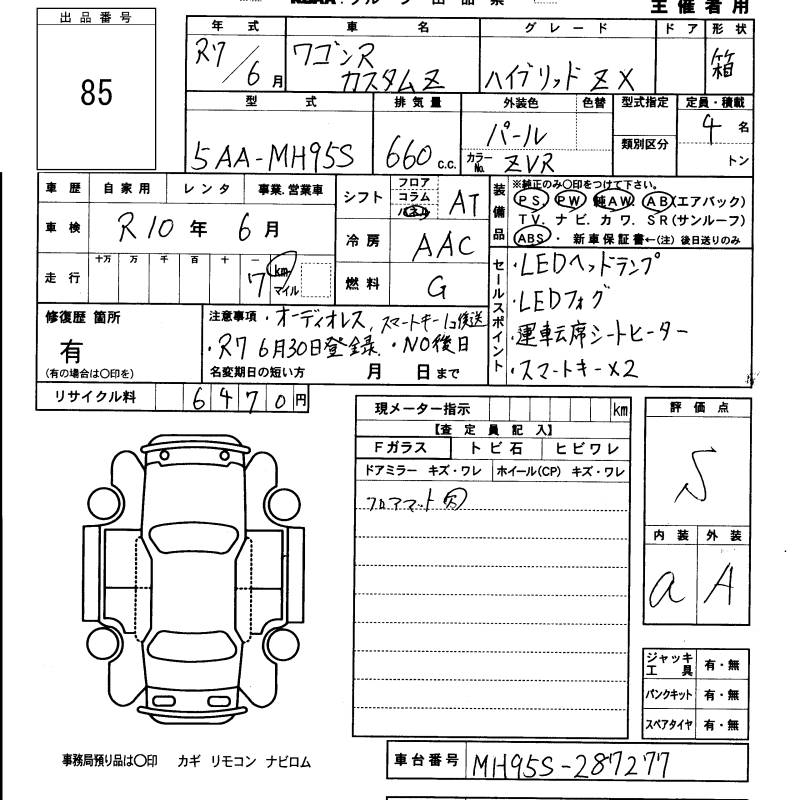 主催者用
出品番号
85
年式 車名 グレード ドア 形状
R7/6月 ワゴンR カスタムZ ハイブリッドZX 箱
型式 排気量 外装色 色替 型式指定 定員・積載
5AA-MH95S 660 c.c. パール 類別区分 4名
カラーNo. ZVR トン
車歴 自家用 レンタ 事業.営業車
車検 R10年 6月
走行 十万 万 千 百 十 一
7 km マイル
シフト フロア コラム パネル AT
冷房 AAC
燃料 G
装備品 ※純正のみ○印をつけて下さい。
PS. PW. 純AW. AB(エアバック)
TV. ナビ. カワ. SR(サンルーフ)
ABS・新車保証書←(注)後日送りのみ
セールスポイント
・LEDヘッドランプ
・LEDフォグ
・運転席シートヒーター
・スマートキー×2
修復歴 箇所
有
(有の場合は○印を)
注意事項・オーディオレス, スマートキー1コ後送
・R7 6月30日登録・NO後日
名変期日の短い方 月 日まで
リサイクル料 6470円
現メーター指示 km
【査定員記入】
Fガラス トビ石 ヒビワレ
ドアミラー キズ・ワレ ホイール(CP) キズ・ワレ
フロアマット欠
評価点
S
内装 外装
a A
ジャッキ工具 有・無
パンクキット 有・無
スペアタイヤ 有・無
事務局預り品は○印 カギ リモコン ナビロム
車台番号 MH95S-287277